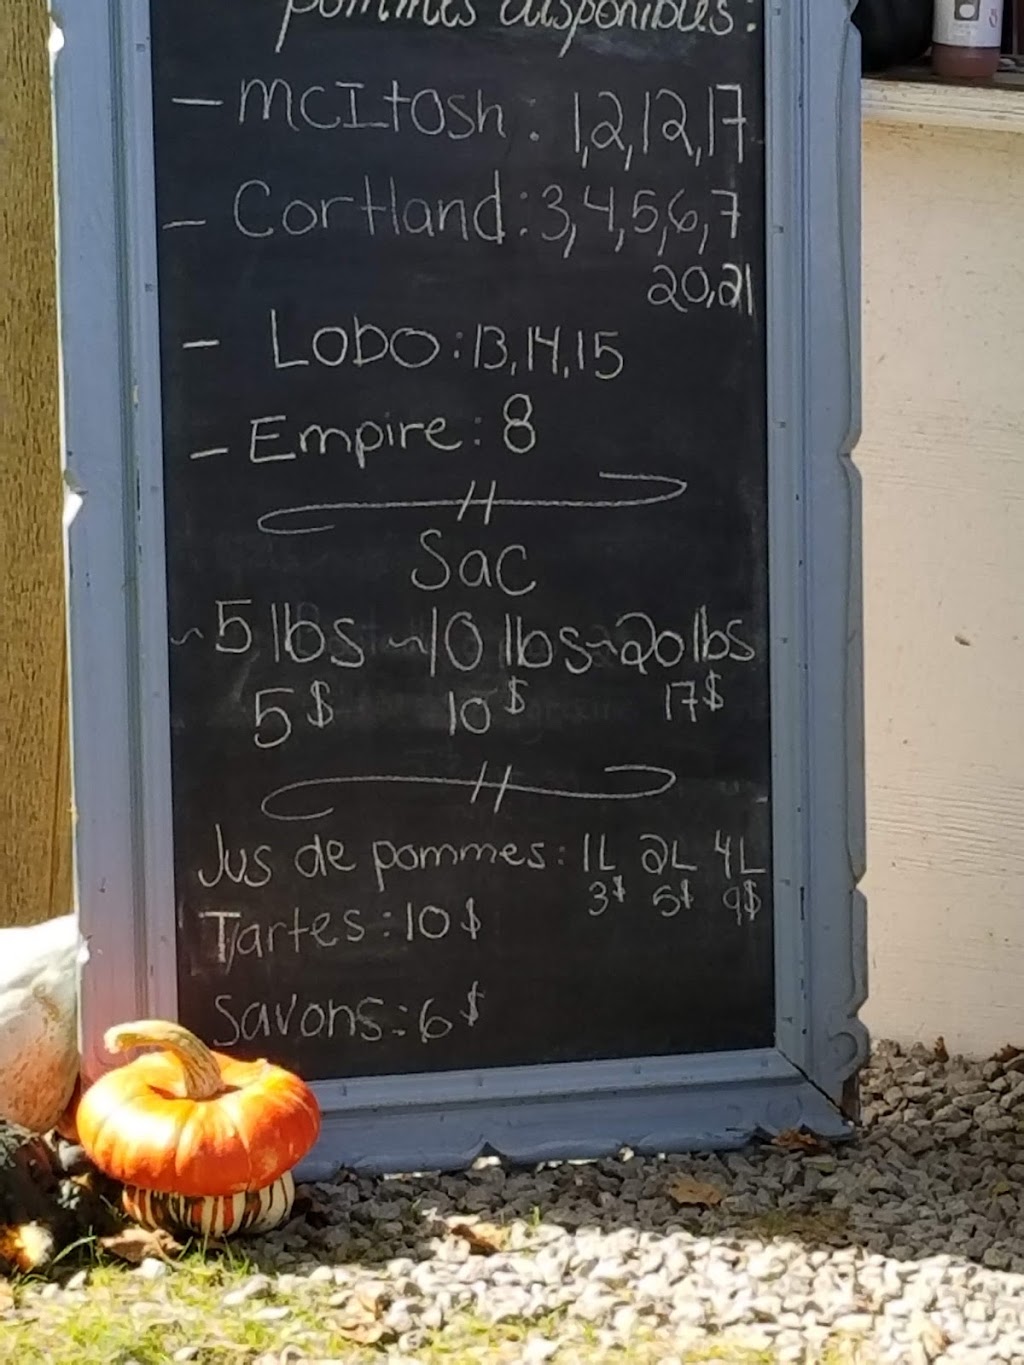 pommes disponibles:
- McItosh: 1,2,12,17
- Cortland: 3,4,5,6,7
20,21
- Lobo: 13,14,15
- Empire: 8
Sac
~5 lbs ~10 lbs ~20 lbs
5$ 10$ 17$
Jus de pommes: 1L 2L 4L
3$ 5$ 9$
Tartes: 10$
Savons: 6$